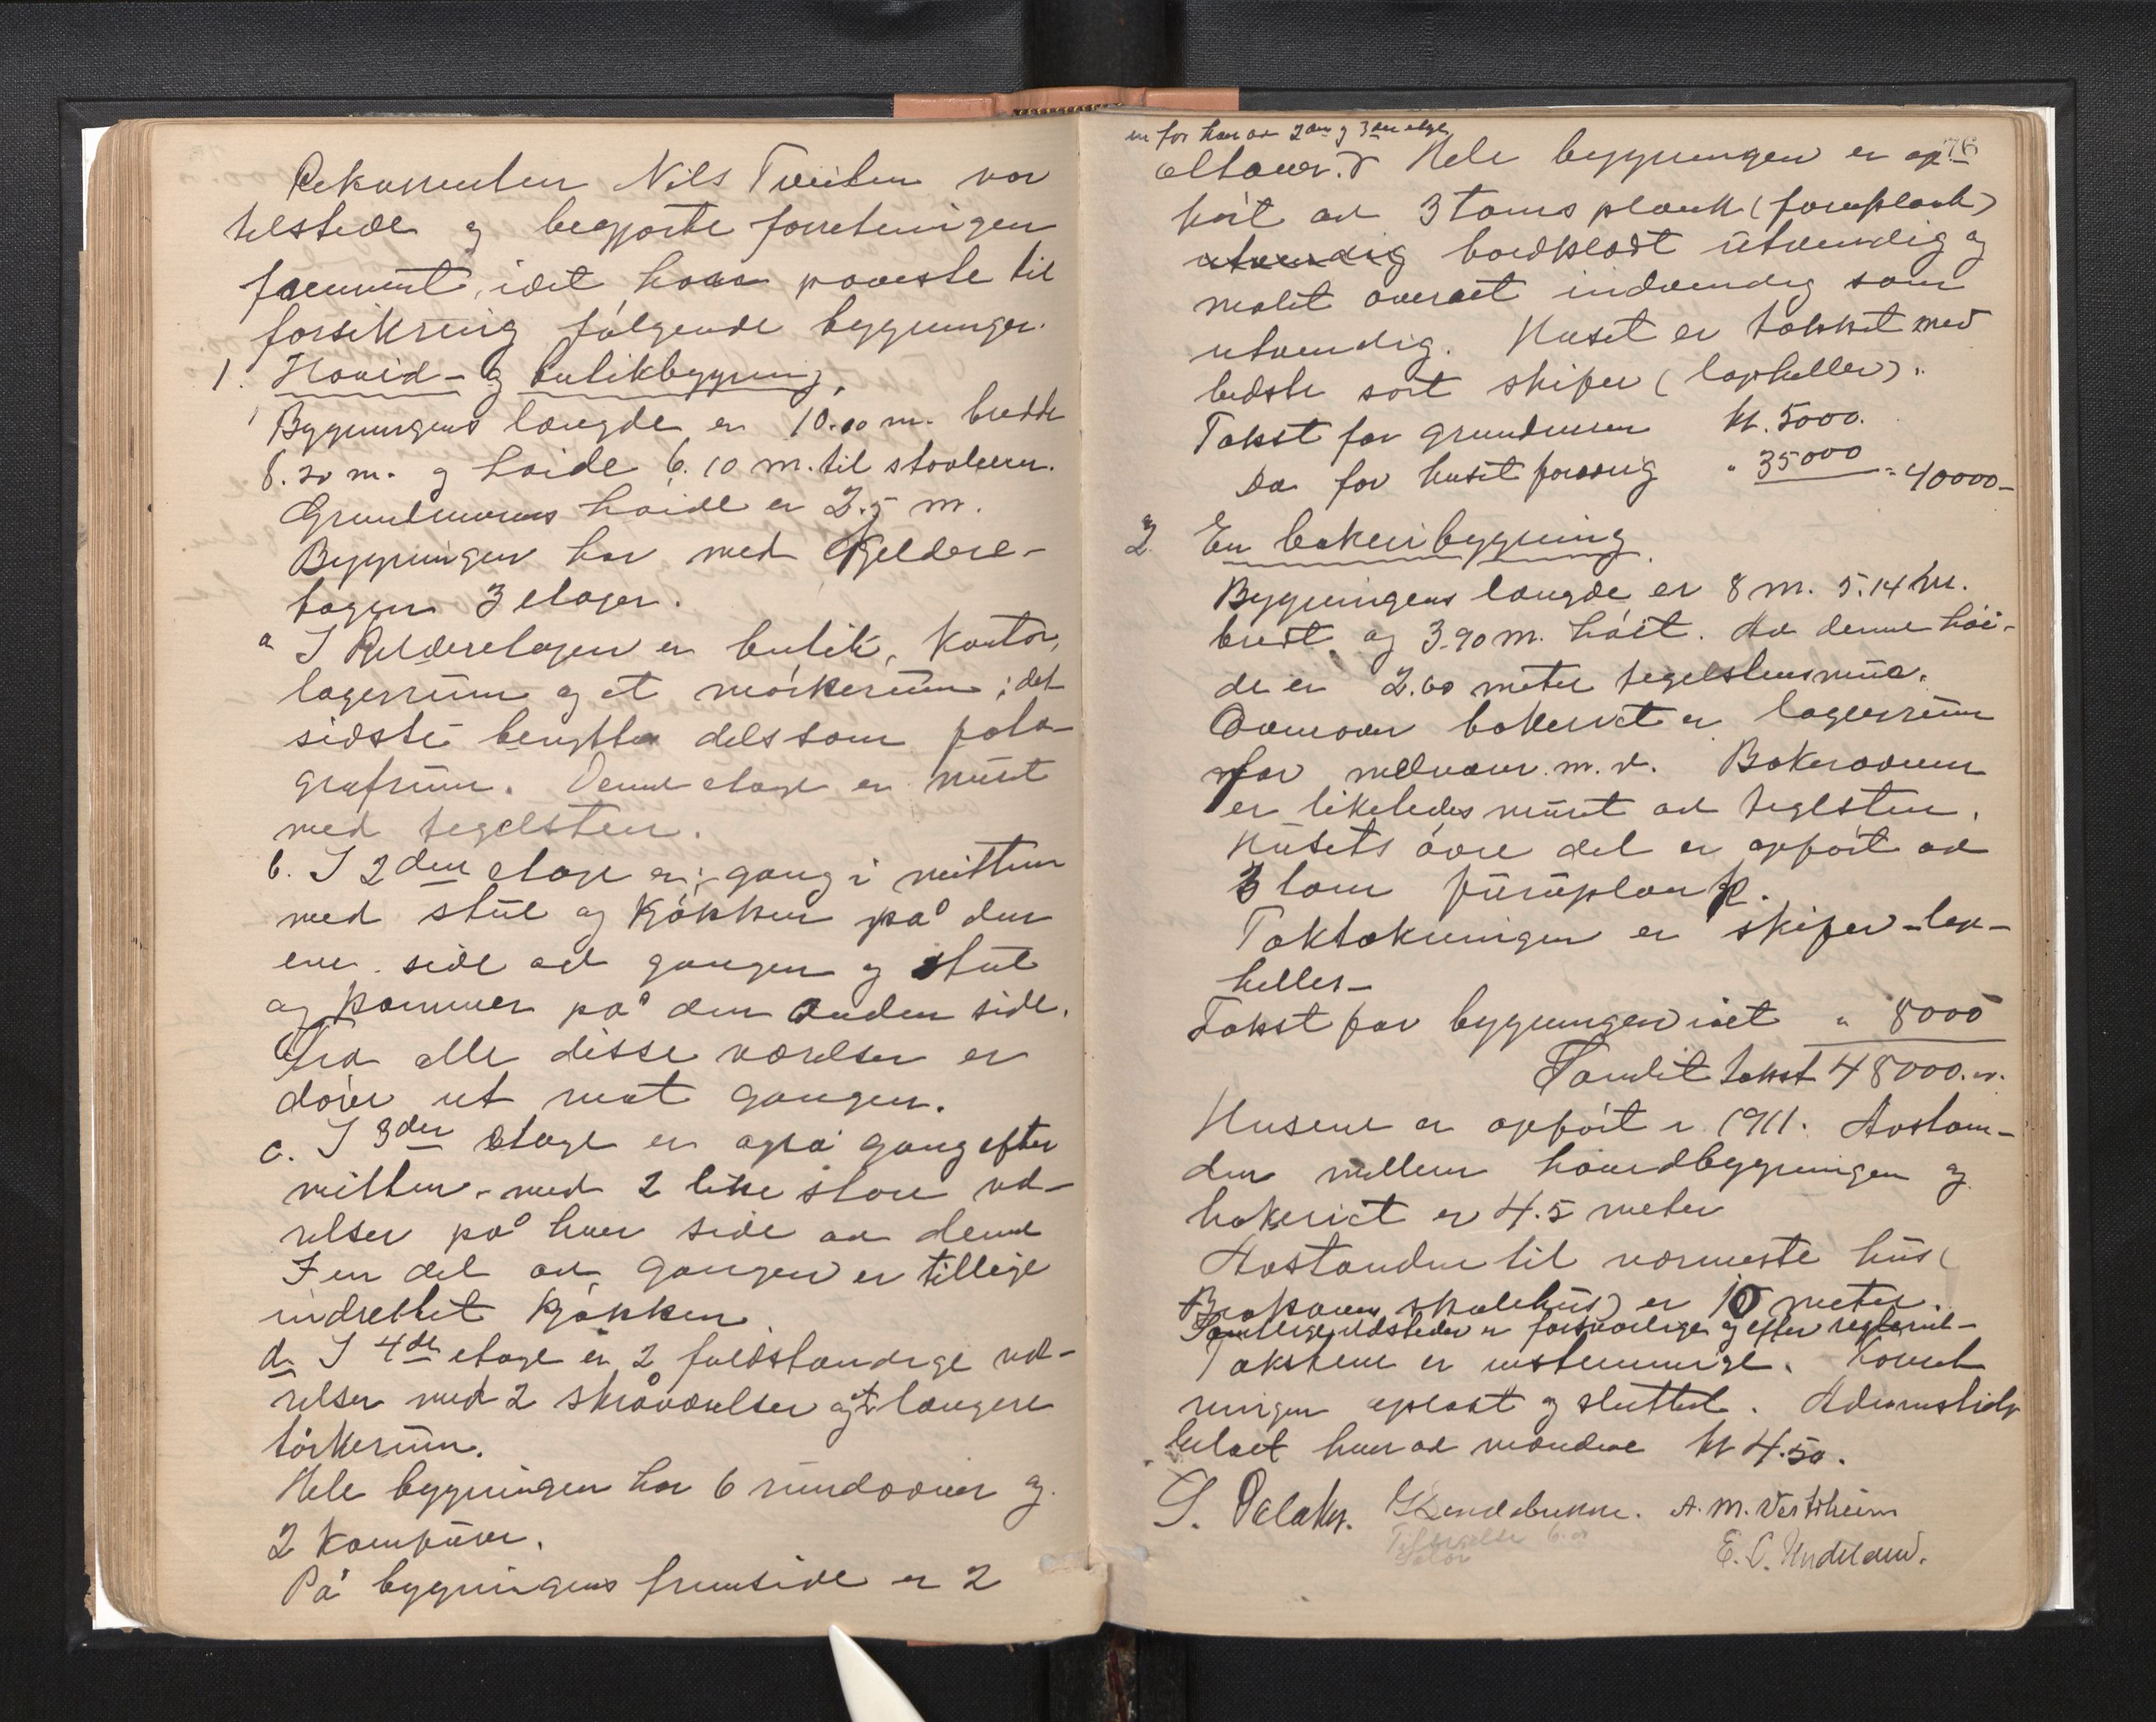 Rekvirenten Nils Tveiten var
tilstede og begjærte forretningen
fremmet, idet han paaviste til
forsikring følgende bygninger.
1. Hovid- og butikbygning.
Bygningens længde er 10.00 m. bredde
8.20 m. og høide 6.10 m. til stavlægen.
Grundmurens høide er 2.5 m.
Bygningen har med Kjeldere-
tagen 3 etager.
a I Kjelderetagen er butik, Kontor,
lagerrum og et mørkerum; det
sidste benyttes dels som foto-
grafrum. Denne etage er muret
med tegelsten.
b. I 2den etage er gang i mitten
med stue og Kjøkken på den
ene side av gangen og stue
og kammer på den anden side.
Fra alle disse værelser er
dører ut mot gangen.
c. I 3der etage er også gang efter
mitten - med 2 like store væ-
relser på hver side av denne
I en del av gangen er tillige
indrettet Kjøkken.
d. I 4de etage er 2 fuldstændige væ-
relser med 2 skråværelser og et længere
tørkerum.
Hele bygningen har 6 rundovner og
2 Komfurer.
På bygningens fremside er 2
76
en for hver av 2den og 3den etage
altaner. Hele bygningen er op-
ført av 3 toms plank (furuplank)
utvendig bordklædt utvendig og
malet overalt indvendig som
utvendig. Huset er tækket med
bedste sort skifer (lapheller).
Takst for grundmuren kr. 5000.
Do for huset forøvrig " 35000 = 40000-
2. En bakeribygning.
Bygningens længde er 8 m. 5.14 m.
bredt og 3.90 m. høit. Av denne høi-
de er 2.60 meter tegelstensmur.
Ovenover bakeriet er lagerrum
for melvarer m. v. Bakerovnen
er likeledes muret av teglsten.
Husets øvre del er opført av
3 tom furuplank.
Taktækningen er skifer - lap-
heller -
Takst for bygningen i alt " 8000
Samlet takst 48000.00.
Husene er opført i 1911. Avstan-
den mellem hovedbygningen og
bakeriet er 4.5 meter
Avstanden til nærmeste hus (
skolehus) er 10 meter.
Samtlige ildsteder er forsvarlige og efter reglement-
Takstene er enstemmige. Forret-
ningen oplæst og sluttet. Avdramstids
beløet hver av mændene kr 4.50.
S. A. M. Vestrheim
E. O.